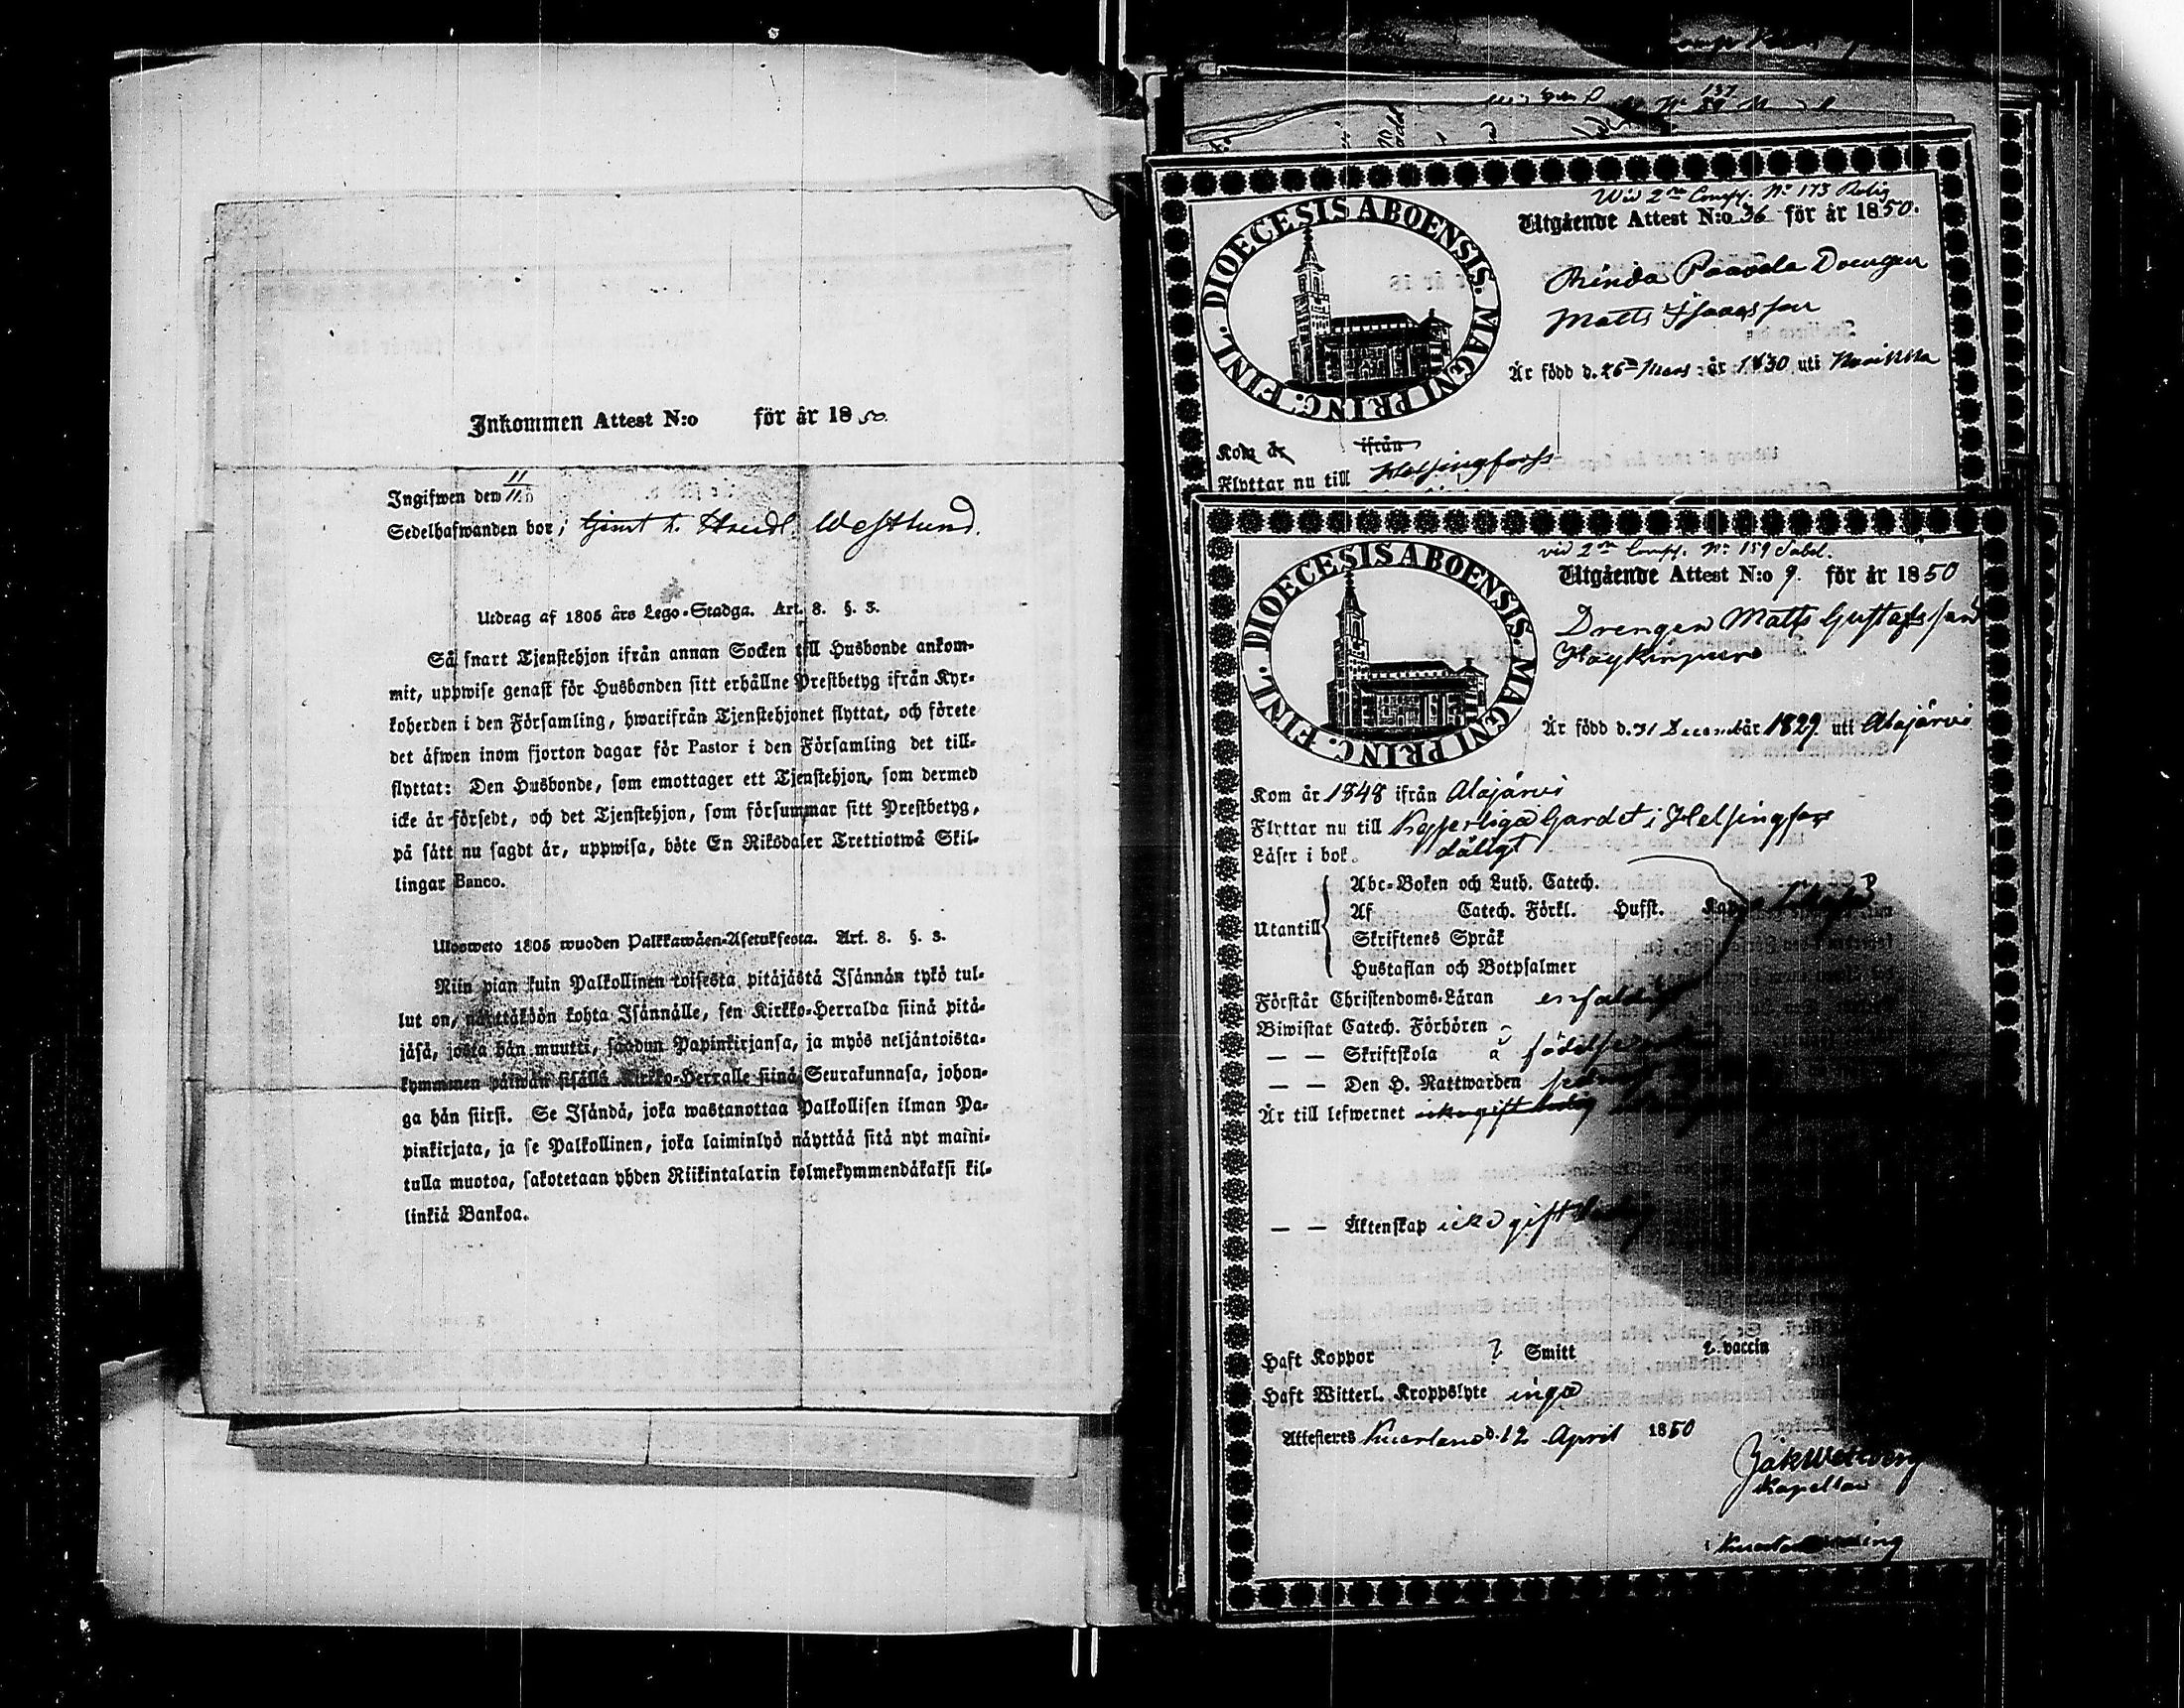 Inkommen Attest N:o för år 1850.
Ingifwen den 11/11
Sedelhafwanden bor i hos Westlund.
Utdrag af 1805 års Lego-Stadga. Art. 8. §. 3.
Så snart Tjenstehjon ifrån annan Socken till Husbonde ankom-
mit, uppwise genast för Husbonden sitt erhållne Prestbetyg ifrån Kyr-
koherden i den Församling, hwarifrån Tjenstehjonet flyttat, och förete
det äfwen inom fjorton dagar för Pastor i den Församling det till-
flyttat: Den Husbonde, som emottager ett Tjenstehjon, som dermed
icke är försedt, och det Tjenstehjon, som försummar sitt Prestbetyg,
på sätt nu sagdt är, uppwisa, böte En Riksdaler Trettiotwå Skil-
lingar Banco.
Uloosweto 1805 wuoden Palkkawäen-Asetuksesta. Art. 8. §. 3.
Niin pian kuin Palkollinen toisesta pitäjästä Isännän tykö tul-
lut on, näyttäköön kohta Isännälle, sen Kirkko-Herralda siinä pitä-
jäsä, josta hän muutti, saadun Papinkirjansa, ja myös neljäntoista-
kymmmen päiwän sisällä Kirkko-Herralle siinä Seurakunnasa, johon-
ga hän siirsi. Se Isändä, joka wastanottaa Palkollisen ilman Pa-
pinkirjata, ja se Palkollinen, joka laiminlyö näyttää sitä nyt maini-
tulla muotoa, sakotetaan yhden Riikintalarin kolmekymmendäkaksi kil-
linkiä Bankoa.
Wid 2ra Comp. No 173 Rulig
Utgående Attest N:o 36 för år 1850.
DIOECESIS ABOENSIS. MAGNI PRINC. FINL.
Paavola Drengen
Matts Isaacsson
Är född d. 26 Mars år 1830 uti
Kom år ifrån
Flyttar nu till Helsingfors
vid 2ra Comp. No 159 Tabel.
Utgående Attest N:o 9. för år 1850
DIOECESIS ABOENSIS. MAGNI PRINC. FINL.
Drengen Matts Gustafsson
Är född d. 31 Decemb år 1829 uti Alajärvi
Kom år 1848 ifrån Alajärvi
Flyttar nu till Kejserliga Gardet i Helsingfors
Läser i bok dåligt
Utantill
Abc-Boken och Luth. Catech.
Af Catech. Förkl. Hufst. Kap
Skriftenes Språk
Hustaflan och Botpsalmer
Förstår Christendoms-Läran enfaldigt
Biwistat Catech. Förhören
— — Skriftskola å
— — Den H. Nattwarden
Är till lefwernet
— — Äktenskap icke gift
Haft Koppor ? Smitt ? vaccin
Haft Witterl. Kroppslyte inga
Attesteres Kuortane d. 12 April 1850
Jak Wetterberg
Kapellan